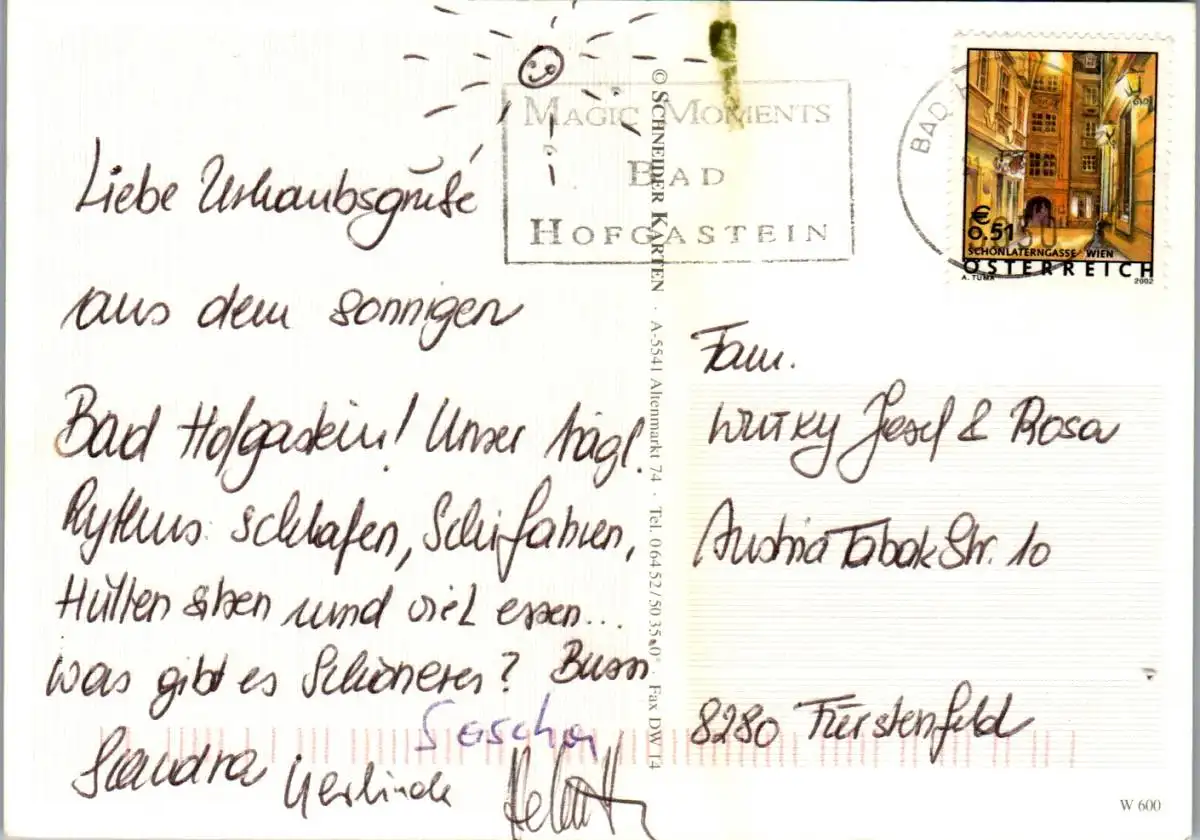 Liebe Urlaubsgrüße
aus dem sonnigen
Bad Hofgastein! Unser tägl.
Rythmus: schlafen, Schifahren,
Hütten sitzen und viel essen...
was gibt es Schöneres? Bussi
Sascha
Sandra Gerlinde Helmut
MAGIC MOMENTS
BAD
HOFGASTEIN
© SCHNEIDER KARTEN · A-5541 Altenmarkt 74 · Tel. 0 64 52 / 50 35-0 · Fax DW 14
BAD
€
0.51
SCHÖNLATERNGASSE WIEN
ÖSTERREICH
A. TUMA 2002
Fam.
Josef & Rosa
Austria Tabak Str. 10
8280 Fürstenfeld
W 600